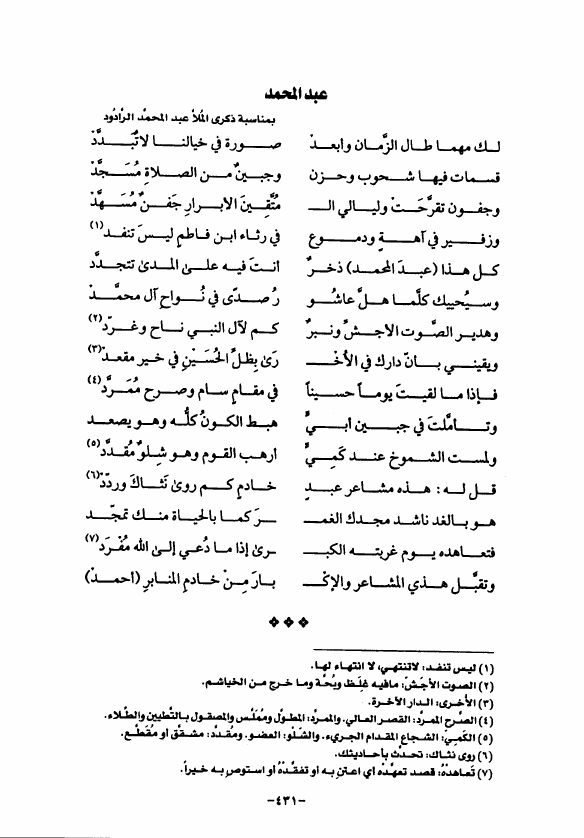 عبد المحمد
بمناسبة ذكرى المُلاّ عبد المحمّد الرادُود
لـك مهمـا طـال الزّمـان وأبعـدْ صـورة في خيالنـا لا تُبَـدَّدْ
قسمـات فيهـا شـحوب وحـزن وجبـينٌ مـن الصـلاةِ مُسَـجَّدْ
وجفـون تقرّحَـتْ وليـالي الـ مُتَّقِيـنَ الأبـرارِ جَفـنٌ مُسَـهَّدْ
وزفـير في آهـةٍ ودمـوع في رثـاء ابـن فـاطمٍ ليـسَ تنفـد(١)
كـل هـذا (عبـدَ المحمـد) ذخـرٌ أنـتَ فيـه علـى المـدى تتجـدَّد
وسـيُحييك كلّمـا هـلَّ عاشـو رُ صـدًى في نُـواحِ آل محمَّـدْ
وهديـر الصَّـوت الأجـشِّ ونـبرٌ كـم لآل النبـي نـاح وغـرَّد(٢)
ويقينـي بـأنّ دارك في الأُخـ رَى بِظلِّ الحُسَـيْنِ في خير مقعـد(٣)
فـإذا مـا لقيـتَ يومـاً حسـيناً في مقـامٍ سـام وصـرح مُمَـرَّد(٤)
وتـأمَّلتَ في جبـين أبـيٍّ هبـط الكـونُ كلُّـه وهـو يصعـد
ولمست الشـموخ عنـد كَمِـيٍّ أرهـب القـوم وهـو شِـلوٌ مُقـدَّد(٥)
قـل لـه: هـذه مشـاعر عبـدٍ خـادمٍ كـم روى نَثـاكَ وردّد(٦)
هـو بـالغد ناشـد مجـدك الغمـ ـرَ كمـا بالحيـاة منـك تمجّـد
فتعاهـده يـوم غربتـه الكبـ ـرى إذا مـا دُعـي إلى الله مُفْـرَد(٧)
وتقبَّـل هـذي المشـاعر والإكْـ بـارَ مِـنْ خـادم المنـابرِ (أحمـدْ)
(١) ليس تنفد: لاتنتهي، لا انتهاء لها.
(٢) الصوت الأجَشّ: مافيه غِلَظ وبُحّة وما خرج من الخياشم.
(٣) الأخرى: الدار الآخرة.
(٤) الصّرح الممرّد: القصر العالي. والممرّد: المطوّل ومُمَلّس والمصقول بالتّطيين والطّلاء.
(٥) الكَمِيّ: الشجاع المقدام الجريء. والشّلو: العضو. ومقدّد: مشقّق أو مُقطّع.
(٦) روى نَثاك: تحدّث بأحاديثك.
(٧) تَعاهَدهُ: قصد تعهّده أي اعتنِ به أو تفقّدهُ أو استوصِ به خيراً.
-٤٣١-